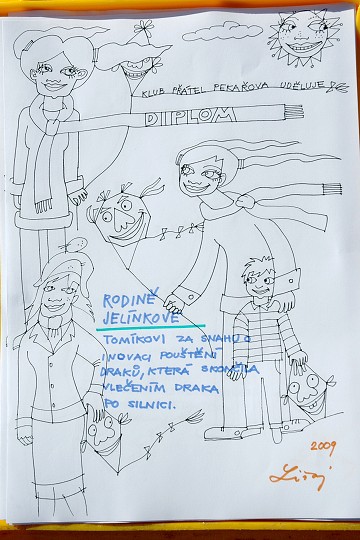 KLUB PŘÁTEL PEKAŘOVA UDĚLUJE
DIPLOM
RODINĚ
JELÍNKOVĚ
TOMÍKOVI ZA SNAHU O
INOVACI POUŠTĚNÍ
DRAKŮ, KTERÁ SKONČILA
VLEČENÍM DRAKA
PO SILNICI.
2009